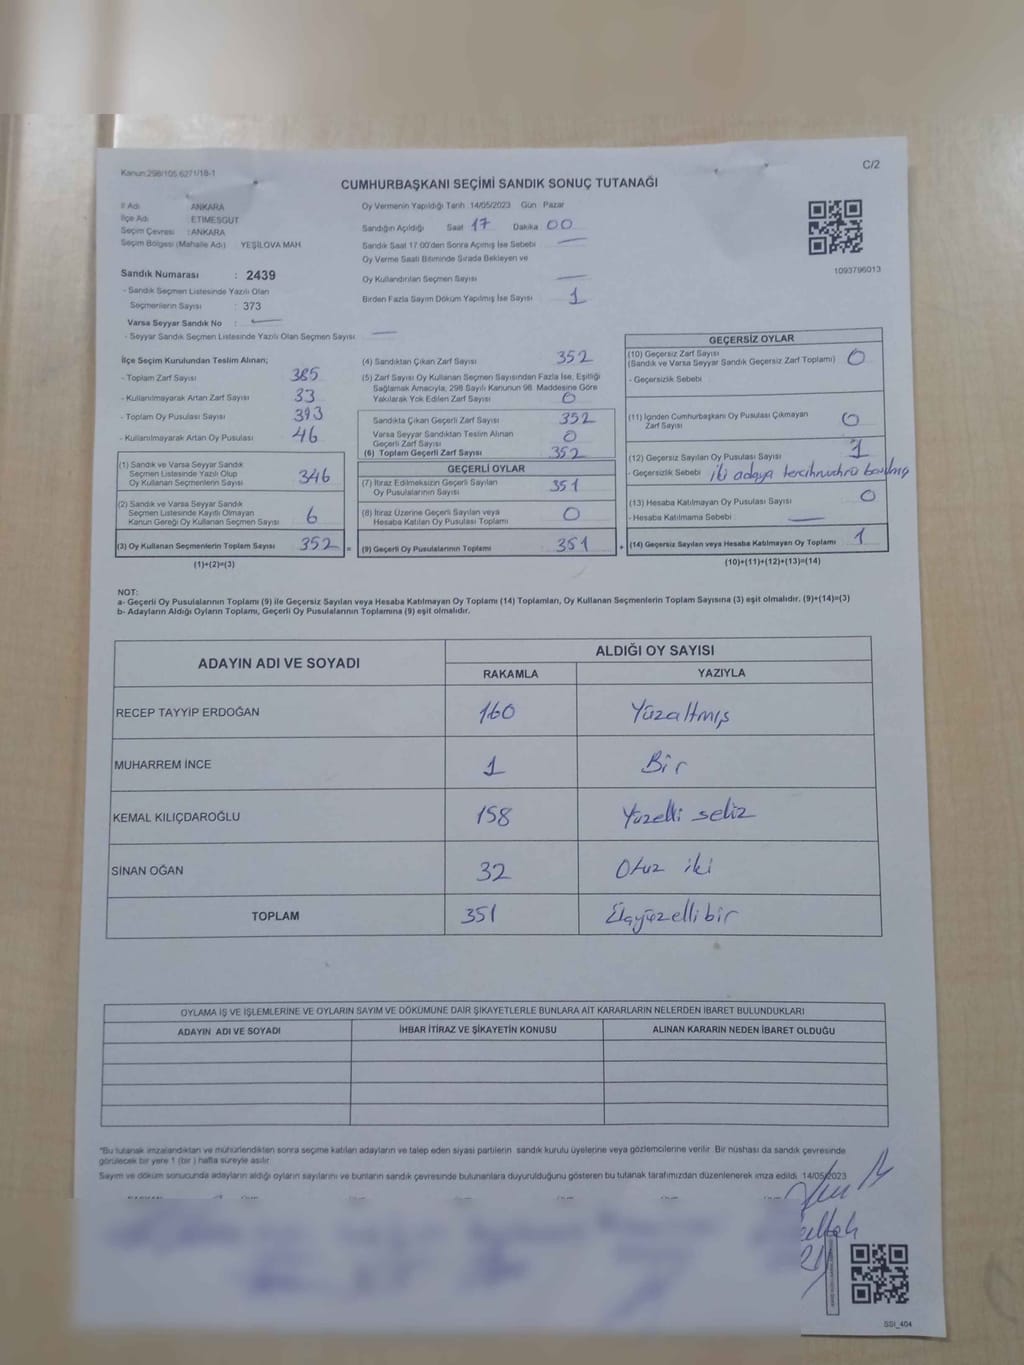 Kanun:298/105 6271/18-1
C/2
CUMHURBAŞKANI SEÇİMİ SANDIK SONUÇ TUTANAĞI
İl Adı : ANKARA
İlçe Adı : ETİMESGUT
Seçim Çevresi : ANKARA
Seçim Bölgesi (Mahalle Adı) YEŞİLOVA MAH.
Sandık Numarası : 2439
- Sandık Seçmen Listesinde Yazılı Olan
Seçmenlerin Sayısı : 373
Varsa Seyyar Sandık No :
- Seyyar Sandık Seçmen Listesinde Yazılı Olan Seçmen Sayısı :
Oy Vermenin Yapıldığı Tarih :14/05/2023 Gün : Pazar
Sandığın Açıldığı Saat 17 Dakika 00
Sandık Saat 17:00'den Sonra Açmış İse Sebebi
Oy Verme Saati Bitiminde Sırada Bekleyen ve
Oy Kullandırılan Seçmen Sayısı
Birden Fazla Sayım Döküm Yapılmış İse Sayısı 1
1093796013
İlçe Seçim Kurulundan Teslim Alınan;
- Toplam Zarf Sayısı 385
- Kullanılmayarak Artan Zarf Sayısı 33
- Toplam Oy Pusulası Sayısı 393
- Kullanılmayarak Artan Oy Pusulası 46
(1) Sandık ve Varsa Seyyar Sandık
Seçmen Listesinde Yazılı Olup
Oy Kullanan Seçmenlerin Sayısı 346
(2) Sandık ve Varsa Seyyar Sandık
Seçmen Listesinde Kayıtlı Olmayan
Kanun Gereği Oy Kullanan Seçmen Sayısı 6
(3) Oy Kullanan Seçmenlerin Toplam Sayısı 352 =
(1)+(2)=(3)
(4) Sandıktan Çıkan Zarf Sayısı 352
(5) Zarf Sayısı Oy Kullanan Seçmen Sayısından Fazla İse, Eşitliği
Sağlamak Amacıyla, 298 Sayılı Kanunun 98. Maddesine Göre
Yakılarak Yok Edilen Zarf Sayısı 0
Sandıkta Çıkan Geçerli Zarf Sayısı 352
Varsa Seyyar Sandıktan Teslim Alınan
Geçerli Zarf Sayısı 0
(6) Toplam Geçerli Zarf Sayısı 352
GEÇERLİ OYLAR
(7) İtiraz Edilmeksizin Geçerli Sayılan
Oy Pusulalarının Sayısı 351
(8) İtiraz Üzerine Geçerli Sayılan veya
Hesaba Katılan Oy Pusulası Toplamı 0
(9) Geçerli Oy Pusulalarının Toplamı 351 +
GEÇERSİZ OYLAR
(10) Geçersiz Zarf Sayısı
(Sandık ve Varsa Seyyar Sandık Geçersiz Zarf Toplamı) 0
- Geçersizlik Sebebi :
(11) İçinden Cumhurbaşkanı Oy Pusulası Çıkmayan
Zarf Sayısı 0
(12) Geçersiz Sayılan Oy Pusulası Sayısı 1
- Geçersizlik Sebebi : iki adaya tercih mührü basılmış
(13) Hesaba Katılmayan Oy Pusulası Sayısı 0
- Hesaba Katılmama Sebebi :
(14) Geçersiz Sayılan veya Hesaba Katılmayan Oy Toplamı 1
(10)+(11)+(12)+(13)=(14)
NOT:
a- Geçerli Oy Pusulalarının Toplamı (9) ile Geçersiz Sayılan veya Hesaba Katılmayan Oy Toplamı (14) Toplamları, Oy Kullanan Seçmenlerin Toplam Sayısına (3) eşit olmalıdır. (9)+(14)=(3)
b- Adayların Aldığı Oyların Toplamı, Geçerli Oy Pusulalarının Toplamına (9) eşit olmalıdır.
ADAYIN ADI VE SOYADI
ALDIĞI OY SAYISI
RAKAMLA YAZIYLA
RECEP TAYYİP ERDOĞAN 160 Yüzaltmış
MUHARREM İNCE 1 Bir
KEMAL KILIÇDAROĞLU 158 Yüzelli sekiz
SİNAN OĞAN 32 Otuz iki
TOPLAM 351 Üçyüzellibir
OYLAMA İŞ VE İŞLEMLERİNE VE OYLARIN SAYIM VE DÖKÜMÜNE DAİR ŞİKAYETLERLE BUNLARA AİT KARARLARIN NELERDEN İBARET BULUNDUKLARI
ADAYIN ADI VE SOYADI İHBAR İTİRAZ VE ŞİKAYETİN KONUSU ALINAN KARARIN NEDEN İBARET OLDUĞU
*Bu tutanak imzalandıktan ve mühürlendikten sonra seçime katılan adayların ve talep eden siyasi partilerin sandık kurulu üyelerine veya gözlemcilerine verilir. Bir nüshası da sandık çevresinde
görülecek bir yere 1 (bir) hafta süreyle asılır.
Sayım ve döküm sonucunda adayların aldığı oyların sayılarını ve bunların sandık çevresinde bulunanlara duyurulduğunu gösteren bu tutanak tarafımızdan düzenlenerek imza edildi. 14/05/2023
SSI_404